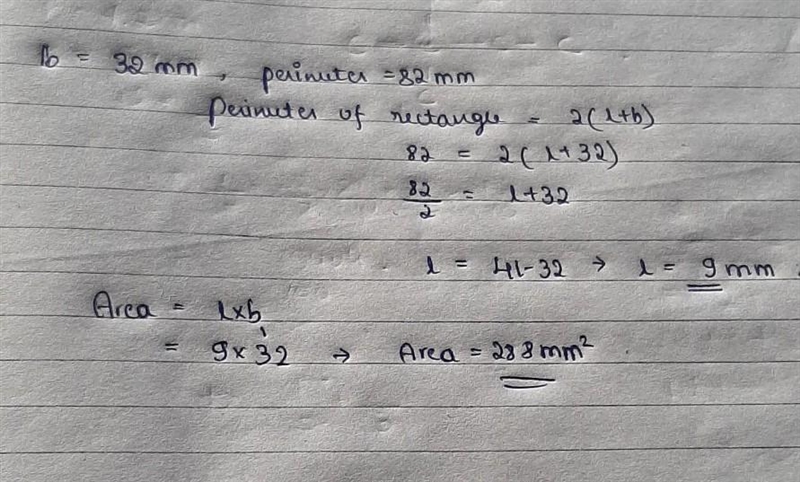 b = 32 mm, perimeter = 82 mm
Perimeter of rectangle = 2(l+b)
82 = 2(l+32)
82/2 = l+32
l = 41-32 → l = 9 mm.
Area = l×b
= 9×32 → Area = 288 mm²